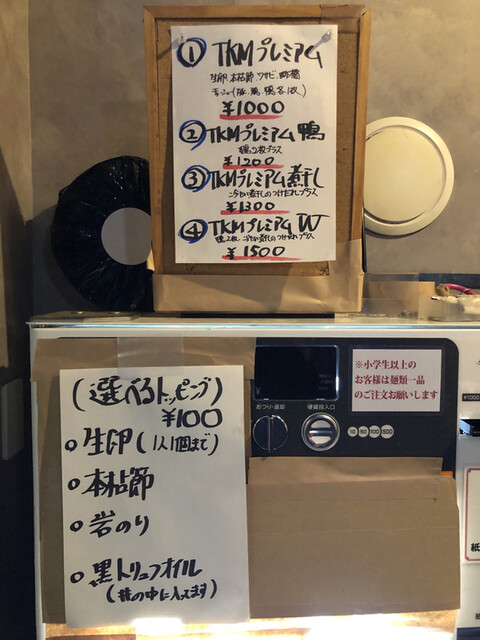 ① TKMプレミアム
生卵、本枯節、ワサビ、
チャーシュー(豚、鶏、鴨 各1枚)
¥1000
② TKMプレミアム 鴨
鴨2枚プラス
¥1200
③ TKMプレミアム煮干し
煮干しのつけだれプラス
¥1300
④ TKMプレミアム W
鴨2枚、煮干しのつけだれプラス
¥1500
(選べるトッピング)
¥100
○生卵(1人1個まで)
○本枯節
○岩のり
○黒トリュフオイル
(の中に入ってます)
おつり・返却
硬貨投入口
10 50 100 500
※小学生以上の
お客様は麺類一品
のご注文お願いします
¥1000
紙